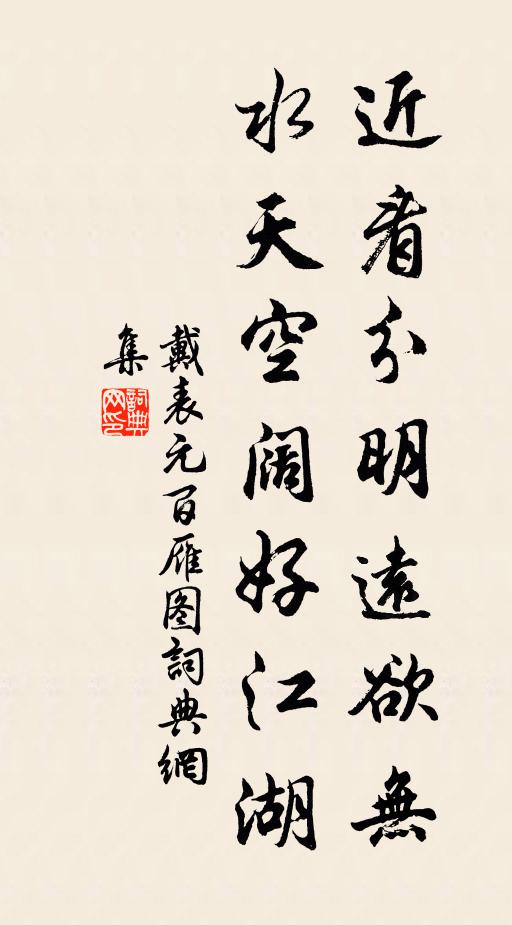 近看分明遠欲無
水天空阔好江湖
戴表元百雁图詞典網
集
詞典网印